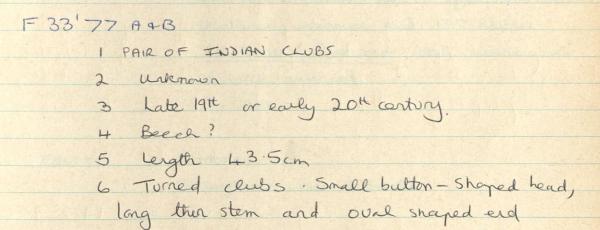 F 33'77 A & B
1 PAIR OF INDIAN CLUBS
2 Unknown
3 Late 19th or early 20th century.
4 Beech?
5 Length 43.5cm
6 Turned clubs. Small button-shaped head,
long thin stem and oval shaped end